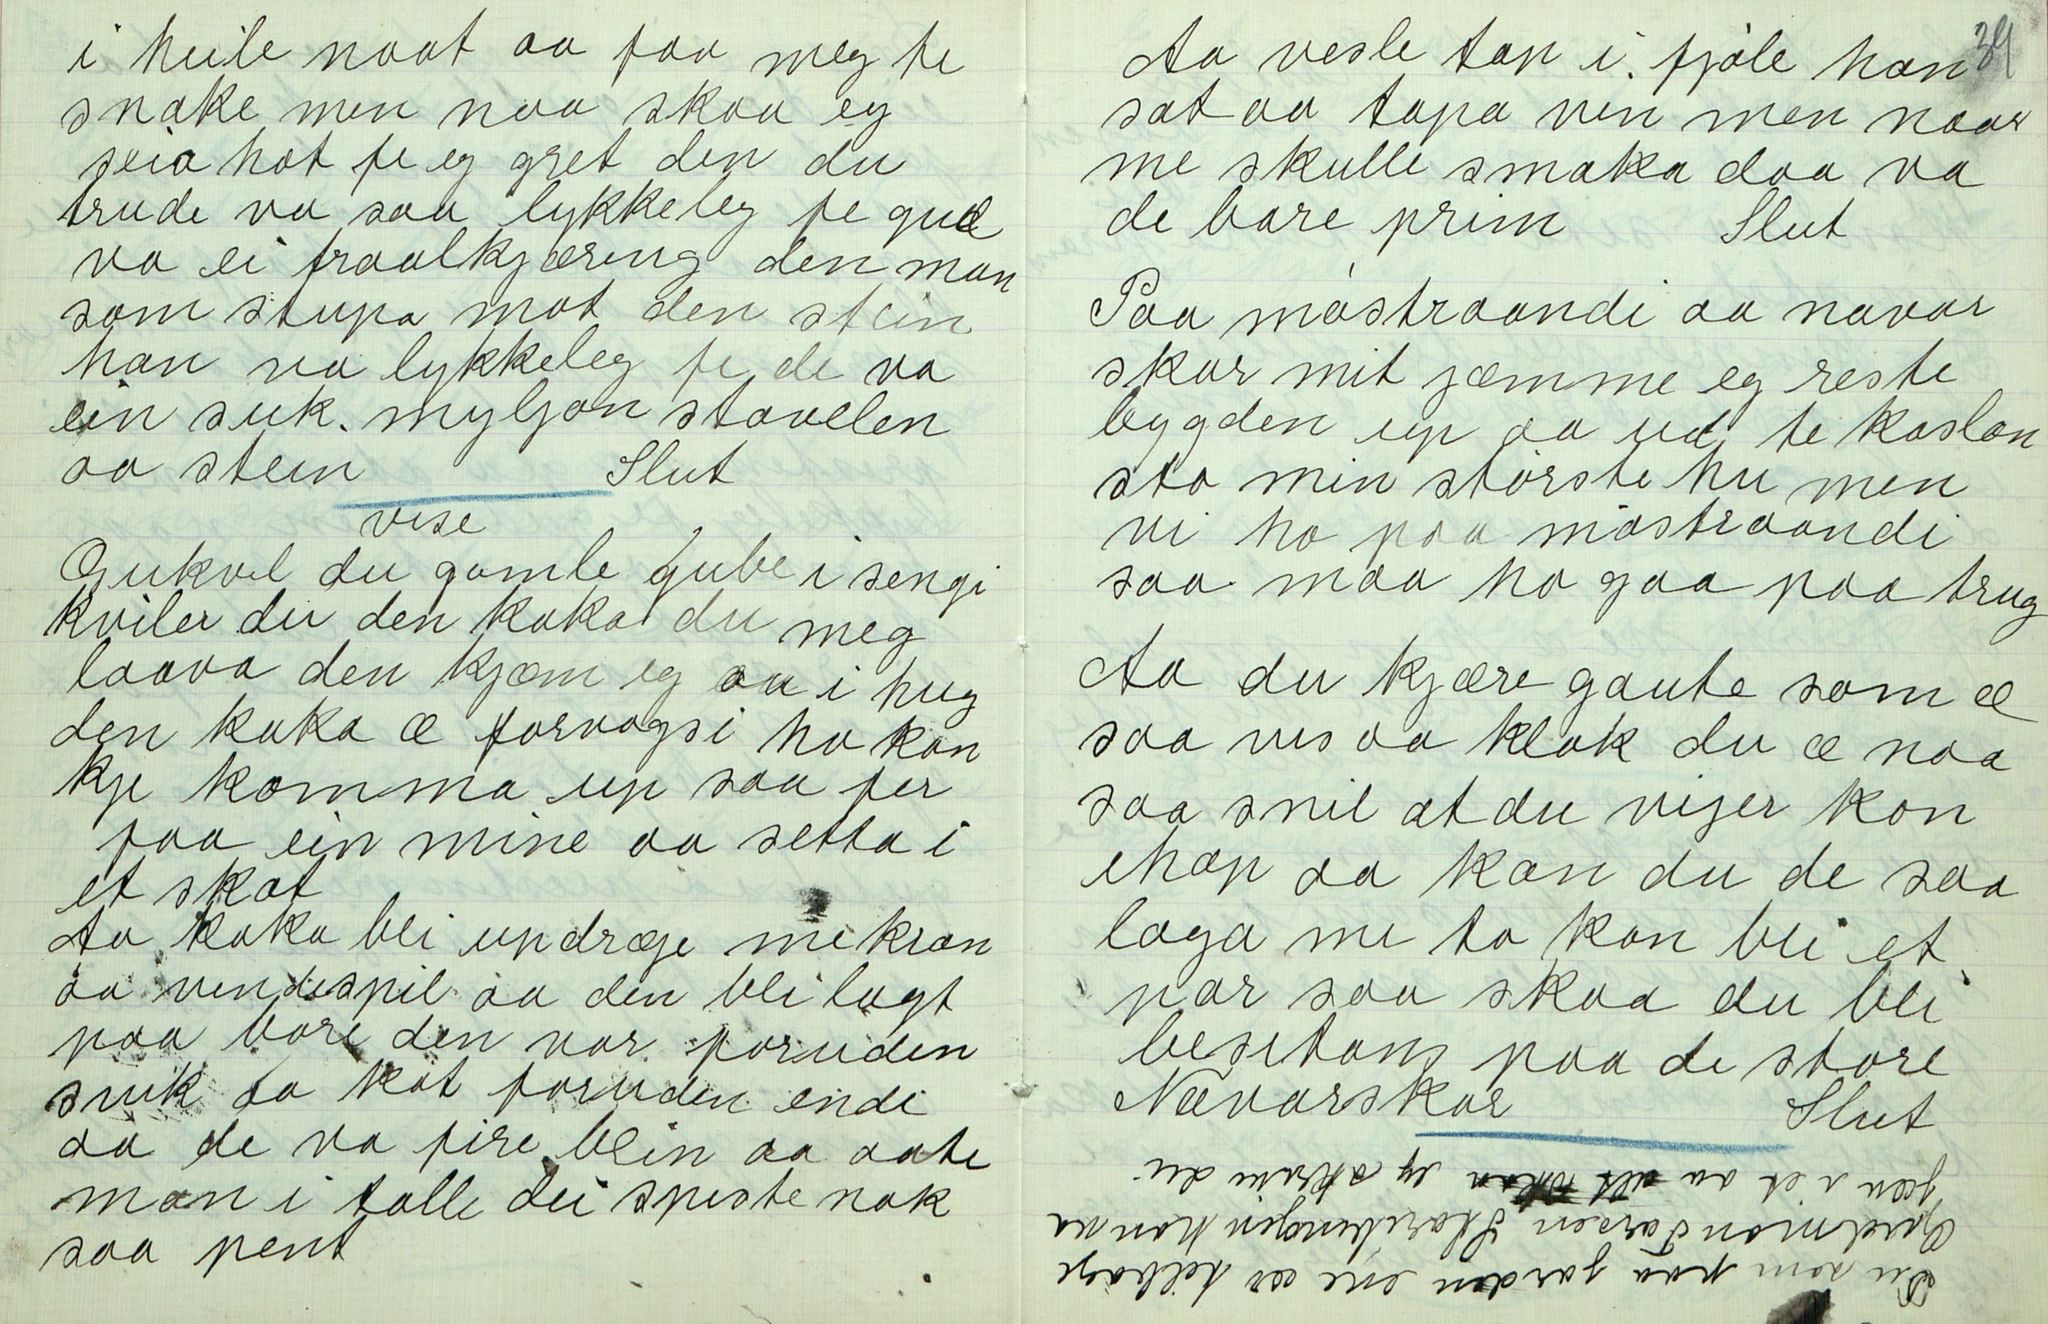 i heile naat aa faa meg te
snake men naa skaa eg
seia hot fe eg gret den du
trude va saa lykkeleg fe gul
va ei fraalkjæring den man
som stupa mot den stein
han va lykkeleg fe de va
ein suk. myljon stavelen
aa stein Slut
vise
Gukvel du gamle gube i sengi
kviler du den kaka du meg
laava den kjæm eg au i hug
den kaka æ forvagsi ho kan
kje komma up saa fer
faa ein mine aa setta i
et skot
Aa kaka bli updræge me kran
aa vendespil aa den bli lagt
paa bore den var foruden
suk aa kot foruden endi
aa de va fire blin aa aate
man i talle dei spiste nok
saa pent
34
Aa vesle tap i. fjøle han
sat aa tapa vin men naar
me skulle smaka daa va
de bare prim Slut
Paa møstraandi aa navar
skar mit jæmme eg reste
bygden up aa ud te kaslan
sto min største hu men
vi ho paa møstraandi
saa maa ho gaa paa trug
Aa du kjære gaute som æ
saa vis aa klok du æ naa
saa snil at du vijer kon
ihop aa kan du de saa
laga me to kan bli et
par saa skaa du bli
besitans paa de store
Nævarskar Slut
Du som paa garden ene er tilbage
Gudmon Tarsen Skarebingen han va
jæn i et aa alt eg skriv du